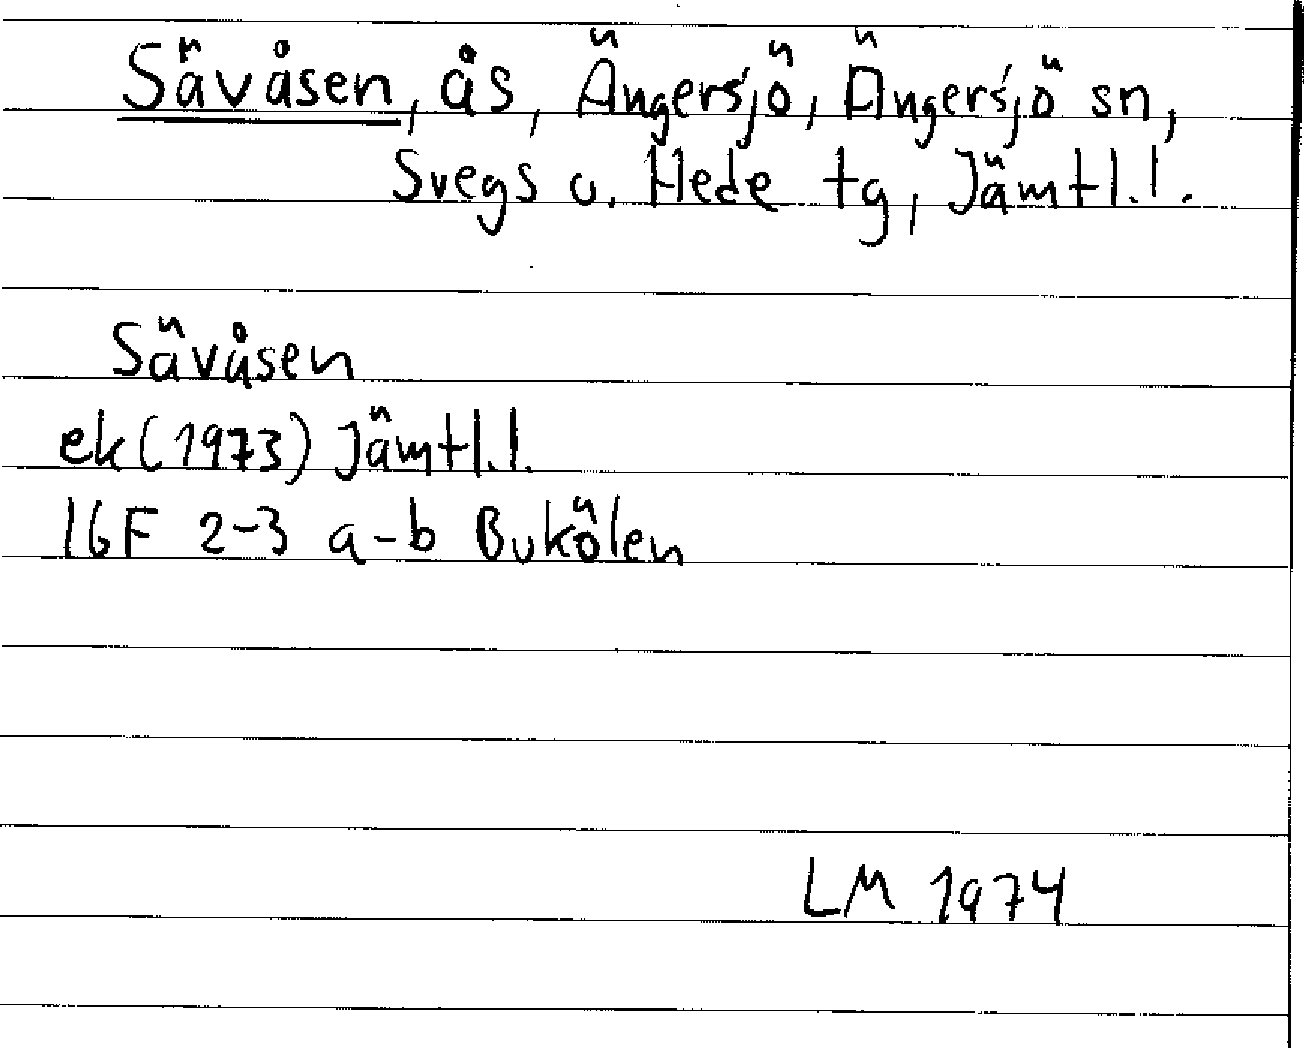 Säväsen, ås, Ängersjö, Ängersjö sn,
Svegs o. Hede tg, Jämtl.l.
Sävåsen
ek (1973) Jämtl.l.
16F 2-3 a-b Bukölen
LM 1974